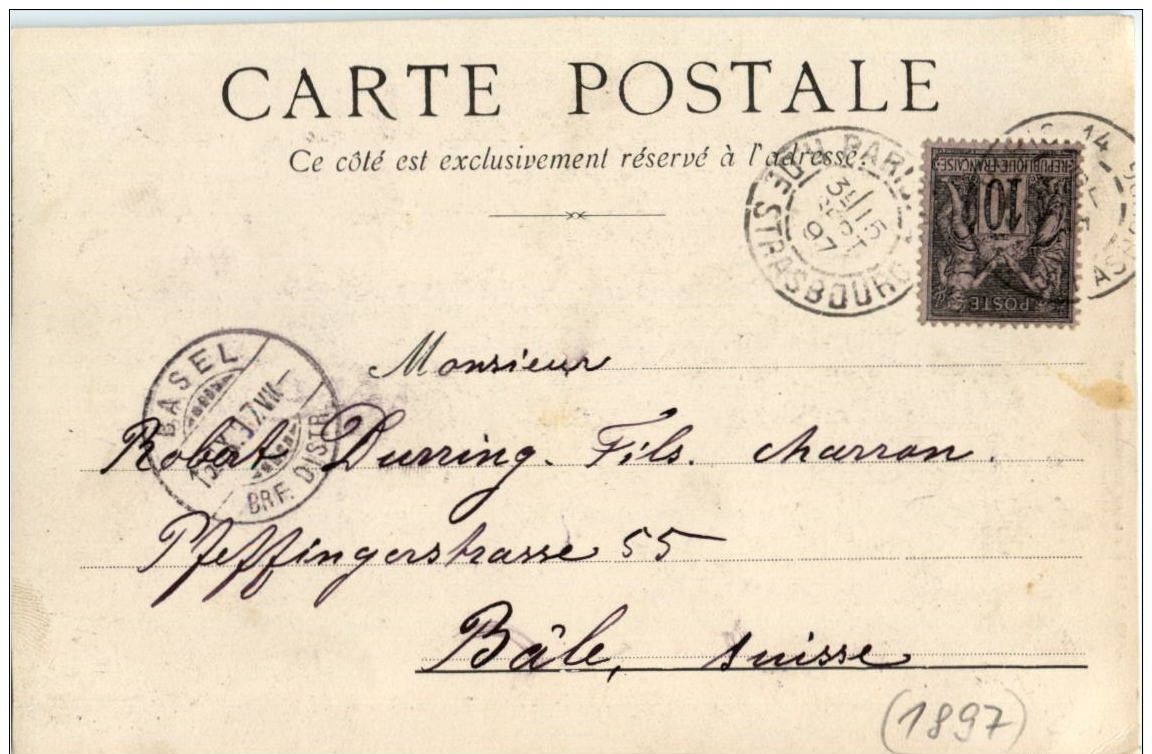 CARTE POSTALE
Ce côté est exclusivement réservé à l'adresse.
PARIS
R. DE STRASBOURG
3E/15
SEPT
97
REPUBLIQUE FRANCAISE
10
POSTE
14
BASEL
13.IX.97.VII-
BRF. DISTR.
Monsieur
Robert Durring. Fils. charron.
Pfeffingerstrasse 55
Bâle, Suisse
(1897)